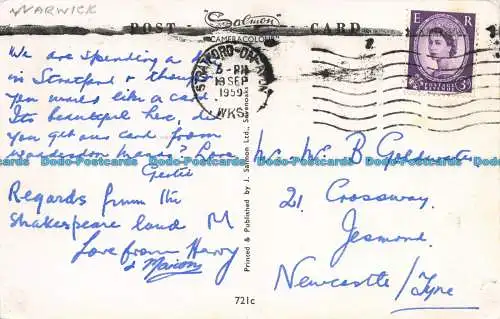 WARWICK
POST CARD
"Salmon"
CAMERACOLOUR
STRATFORD-ON-AVON
6-PM
SEP
1959
WKS.
E R
POSTAGE
REVENUE
3D
We are spending a
in Stratford & thought
you would like a card
Its beautiful here, did
you get our card from
? Love
Gertie
Regards from the
Shakespeare land
Love from Harry
& Marion
Printed & Published by J. Salmon Ltd., Sevenoaks
Mr. Mrs. B Goldwater
21. Crossway,
Jesmond,
Newcastle/Tyne
721c
Bobo-Postcards Bobo-Postcards Bobo-Postcards Bobo-Postcards